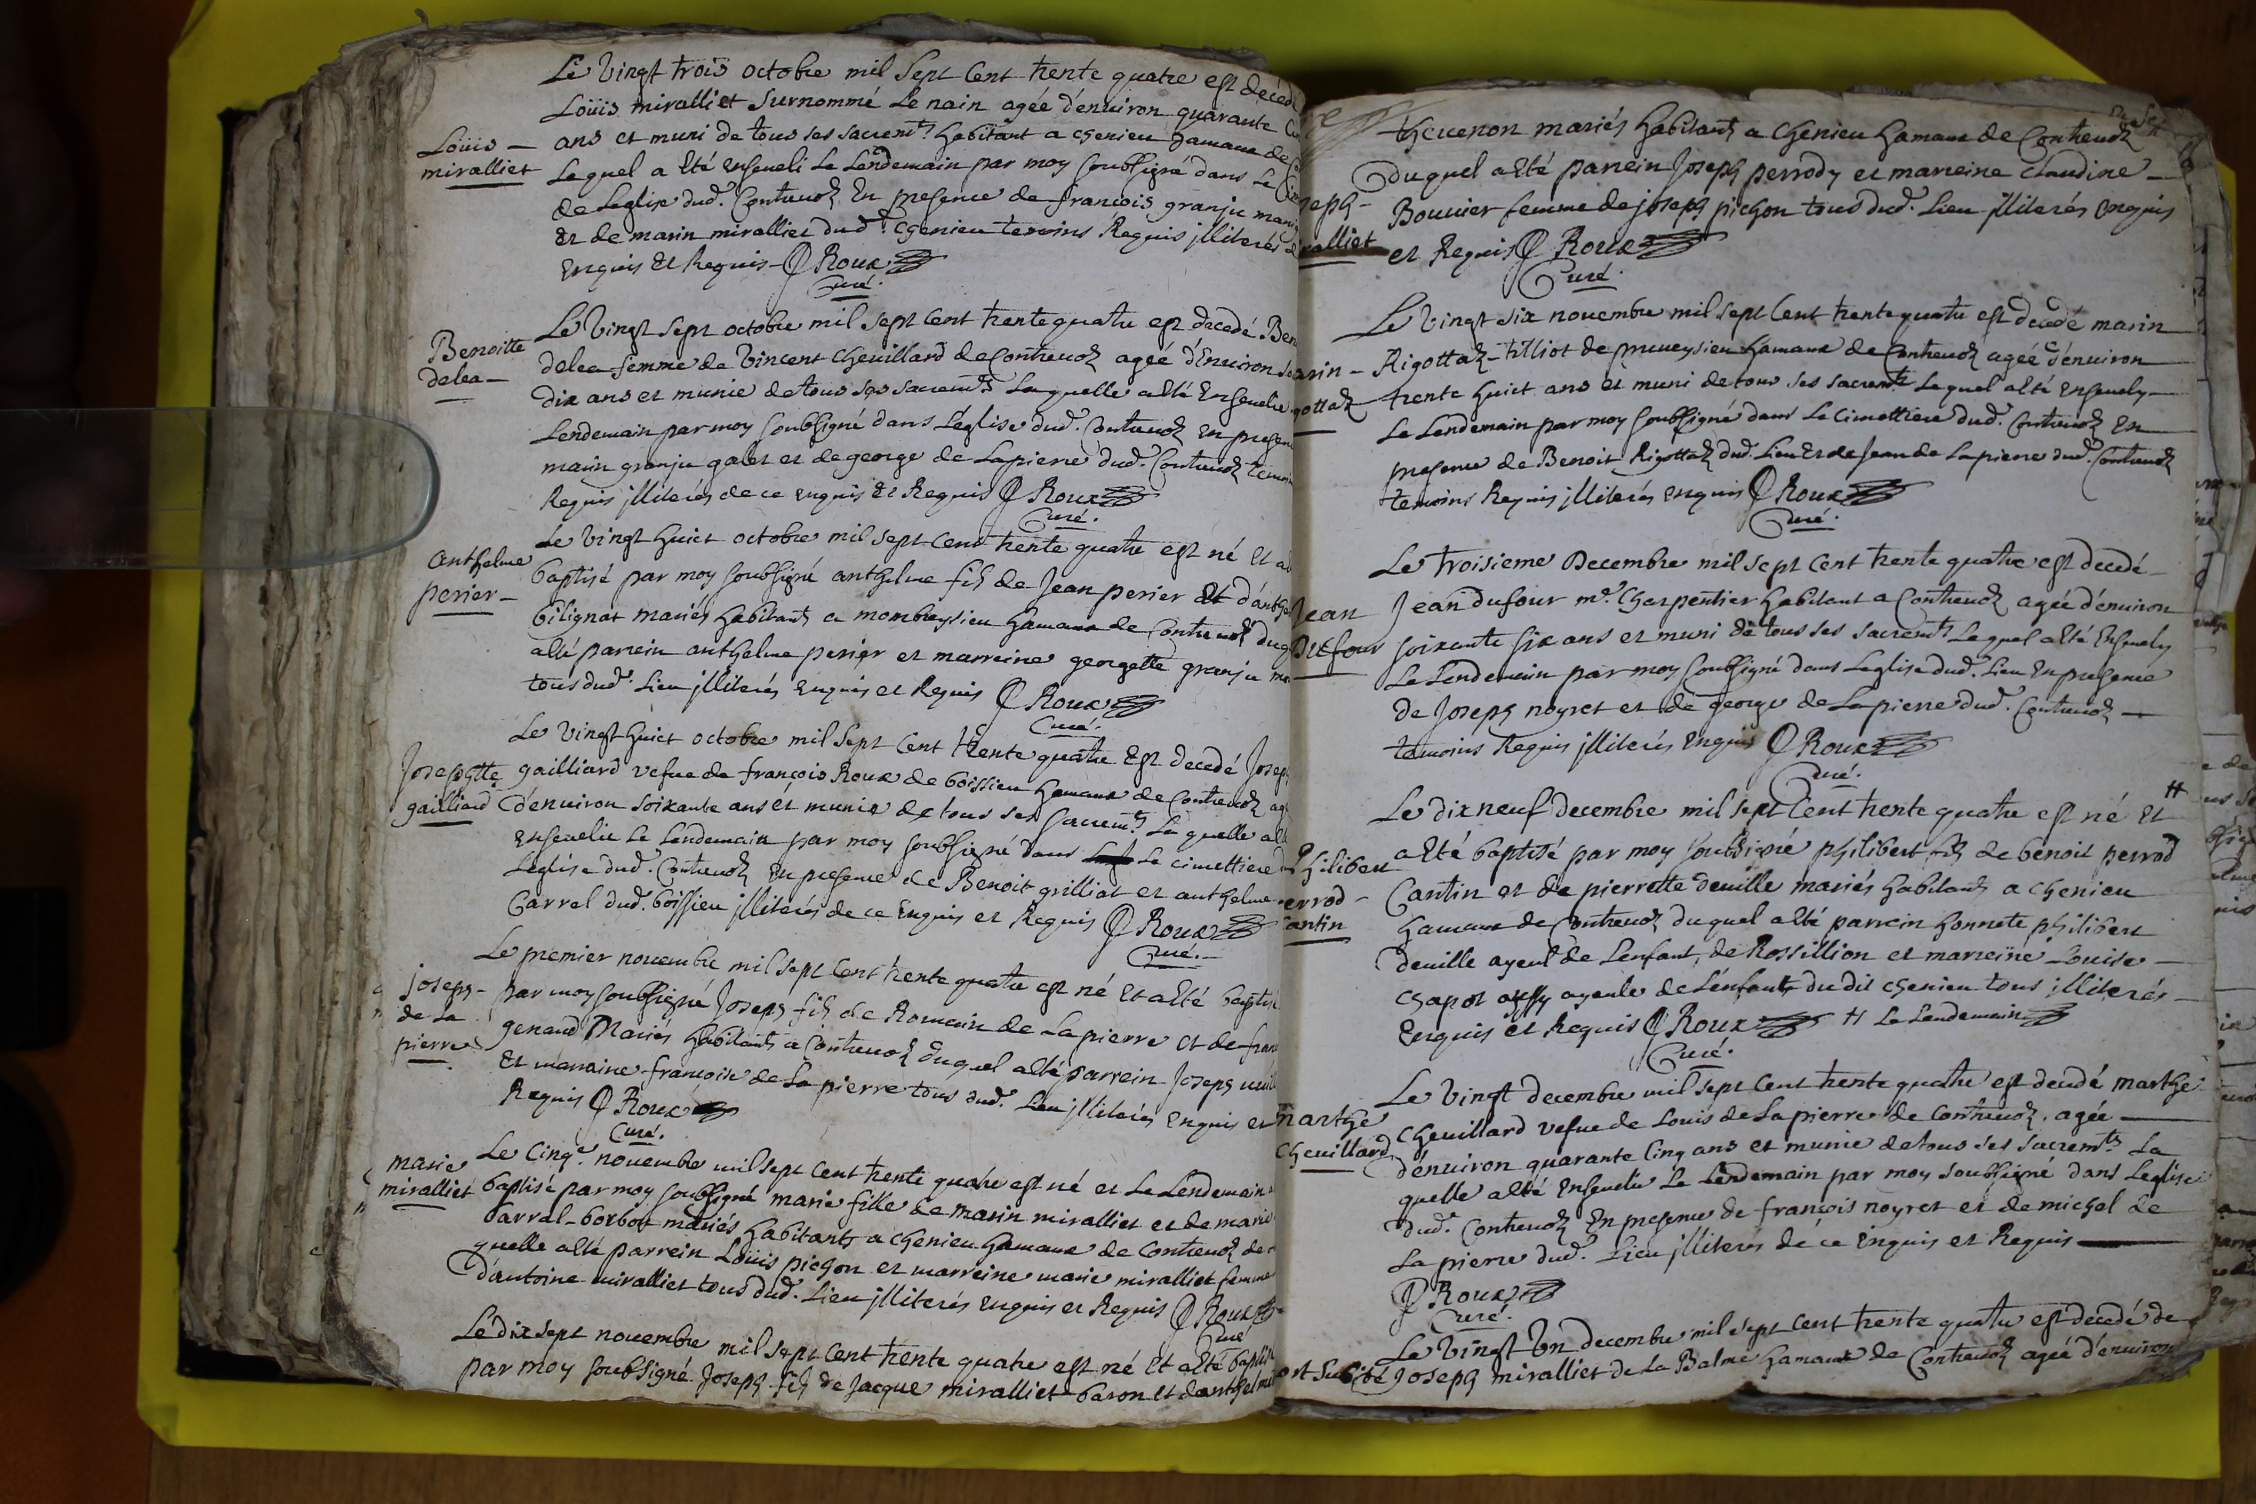 Le Vingt trois octobre mil sept Cent trente quatre est decedé
Loüis miralliet Surnommé Le nain agée d'enuiron quarante
Loüis miralliet
ans et muni de tous ses sacremts habitant a chenieu hamaux de
Lequel a Eté Enseueli Le Lendemain par moy soubsigné dans Le
de Leglise dud. Contreuoz En presence de francois granju
Et de marin miralliet dud. chenieu temoins Requis jlliterés
Enquis Et Requis Roux
Curé.
Le Vingt sept octobre mil sept cent trente quatre est decedé Ben
Benoitte delea
delea femme de Vincent Cheuillard de Contreuoz agée d'Enuiron
dix ans et munie de tous ses sacremts Laquelle a Eté Enseuelie
Lendemain par moy soubsigné dans L'église dud. Contreuoz En presen
marin granju galet et de george de Lapierre dud. Contreuoz temoin
Requis jlliterés de ce Enquis Et Requis Roux
Curé.
Le Vingt huict octobre mil sept cent trente quatre est né Et a
anthelme perier
baptisé par moy soubsigné anthelme fils de Jean perier Et d'anthe
bilignat mariés habitants a mombreysieu hamaux de Contreuoz duq
a Eté parrein anthelme perier et marreine georgette granju
tous dud. Lieu jlliterés Enquis et Requis Roux
Curé.
Le Vingt huict octobre mil sept Cent trente quatre Est decedé Josep
Josephtte gailliard
gailliard vefue de françois Roux de boissieu hamaux de Contreuoz ag
d'enuiron soixante ans et munie de tous ses sacremts La quelle a Eté
Enseuelie Le Lendemain par moy soubsigné dans Le cimettiere
Leglise dud. Contreuoz En presence de Benoit grilliat et anthelme
Carrel dud. boissieu jlliterés de ce Enquis et Requis Roux
Curé.
Le premier nouembre mil sept Cent trente quatre est né Et a Eté baptisé
joseph de La pierre
par moy soubsigné Joseph fils de Romain de La pierre et de fran
genaud Mariés habitants a Contreuoz duquel a Eté parrein Joseph
Et marraine francoise de La pierre tous dud. Lieu jlliterés Enquis et
Requis Roux
Curé.
Le Cinqe. nouembre mil sept Cent trente quatre est né et Le Lendemain
marie miralliet
baptisé par moy soubsigné marie fille de marin miralliet et de marie
barral-borbot mariés habitants a chenieu hamaux de Contreuoz de
quelle a Eté parrein Loüis pichon et marreine marie miralliet femme
d'antoine miralliet tous dud. Lieu jlliterés Enquis et Requis Roux
Curé
Le dix sept nouembre mil sept cent trente quatre est né Et a Eté baptisé
par moy soubsigné Joseph fils de Jacque miralliet baron et d'anthelme
theuenon mariés habitants a Chenieu hamaux de Contreuoz
duquel a Eté parrein Joseph perrody et marreine Claudine
oseph ralliet
Bouuier femme de joseph pichon tous dud. Lieu jlliterés Enquis
et Requis Roux
Curé.
Le Vingt six nouembre mil sept Cent trente quatre est decedé marin
arin gottaz
Rigottaz-tilliot de preueysieu hamaux de Contreuoz agée d'enuiron
trente huict ans et muni de tous ses sacremts Lequel a Eté Enseuely
Le Lendemain par moy soubsigné dans Le Cimettiere dud. Contreuoz En
presence de Benoit Rigottaz dud. Lieu Et de Jean de La pierre dud. Contreuoz
temoins Requis jlliterés Enquis Roux
Curé.
Le troisieme Decembre mil sept Cent trente quatre est decedé
Jean Dufour
Jean dufour me. Charpentier habitant a Contreuoz agée d'enuiron
soixante six ans et muni de tous ses sacremts Lequel a Eté Enseuely
Le Lendemain par moy soubsigné dans Leglise dud. Lieu En presence
de Joseph noyret et de george de La pierre dud. Contreuoz
temoins Requis jlliterés Enquis Roux
Curé.
Le dix neuf decembre mil sept Cent trente quatre est né Et #
philibert perrod Cantin
a Eté baptisé par moy soubsigné philibert fils de benoit perrod
Cantin et de pierrette deuille mariés habitants a chenieu
hamaux de Contreuoz duquel a Eté parrein honnete philibert
deuille ayeul de L'enfant, de Rossillion et marreine Louise
chapot ayeule de L'enfant du dit chenieu tous jlliterés
Enquis et Requis Roux # Le Lendemain
Curé.
Le Vingt decembre mil sept Cent trente quatre est decedé marthe
marthe Cheuillard
Cheuillard vefue de Louis de La pierre de Contreuoz, agée
d'enuiron quarante Cinq ans et munie de tous ses sacremts La
quelle a Eté Enseuelie Le Lendemain par moy soubsigné dans Leglise
dud. Contreuoz En presence de françois noyret et de michel de
La pierre dud. Lieu jlliterés de ce Enquis et Requis
Roux
Curé.
Le Vingt Vn decembre mil sept Cent trente quatre est decedé de
ort Subite Joseph miralliet de La Balme hamaux de Contreuoz agée d'enuiron